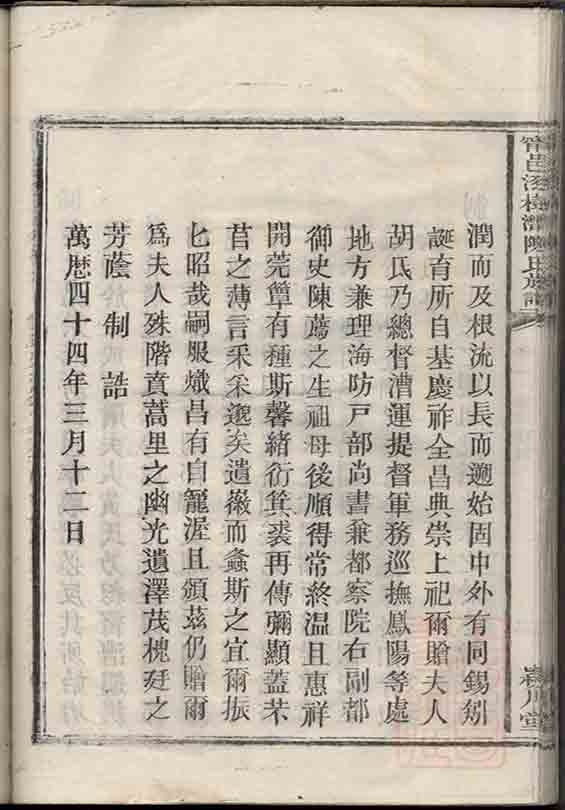 潤而及根流以長而遡始固中外有同錫矧
誕育所自基慶祚全昌典崇上祀爾贈夫人
胡氏乃總督漕運提督軍務巡撫鳳陽等處
地方兼理海防戶部尚書兼都察院右副都
御史陳薦之生祖母後順得常終溫且惠祥
開莞簟有種斯馨緒衍箕裘再傳彌顯蓋芣
苢之薄言采采邈矣遺徽而螽斯之宜爾振
匕昭哉嗣服熾昌有自寵渥且頒茲仍贈爾
為夫人殊階賁蒿里之幽光遺澤茂槐廷之
芳蔭制誥
萬曆四十四年三月十二日
甯邑
樹灣陳氏族譜
川堂